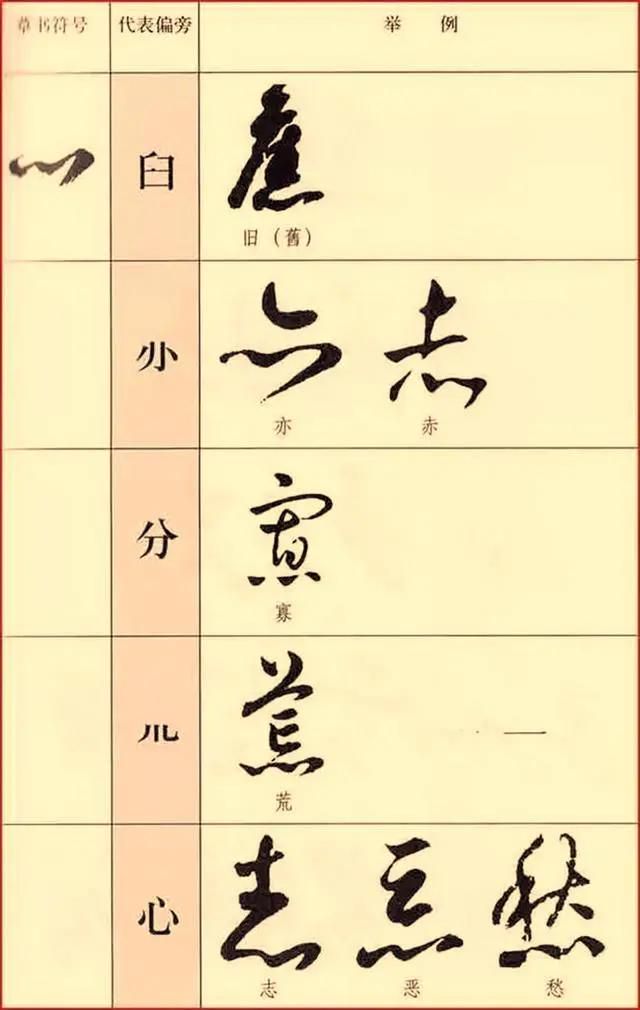 草书符号 代表偏旁 举 例
臼
旧（舊）
亦 赤
分
寡
荒
心
志 恶 愁